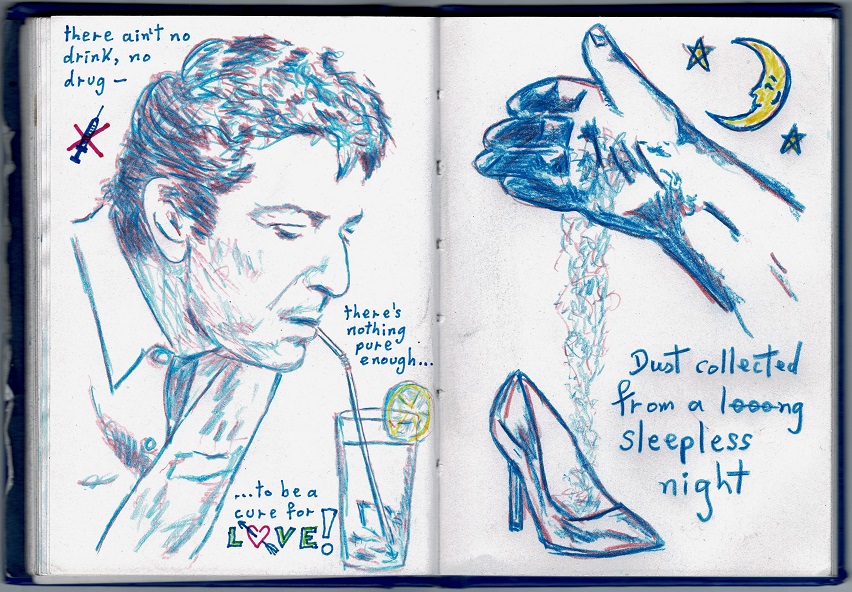 there ain't no
drink, no
drug —
there's
nothing
pure
enough...
...to be a
cure for
LOVE!
Dust collected
from a looong
sleepless
night